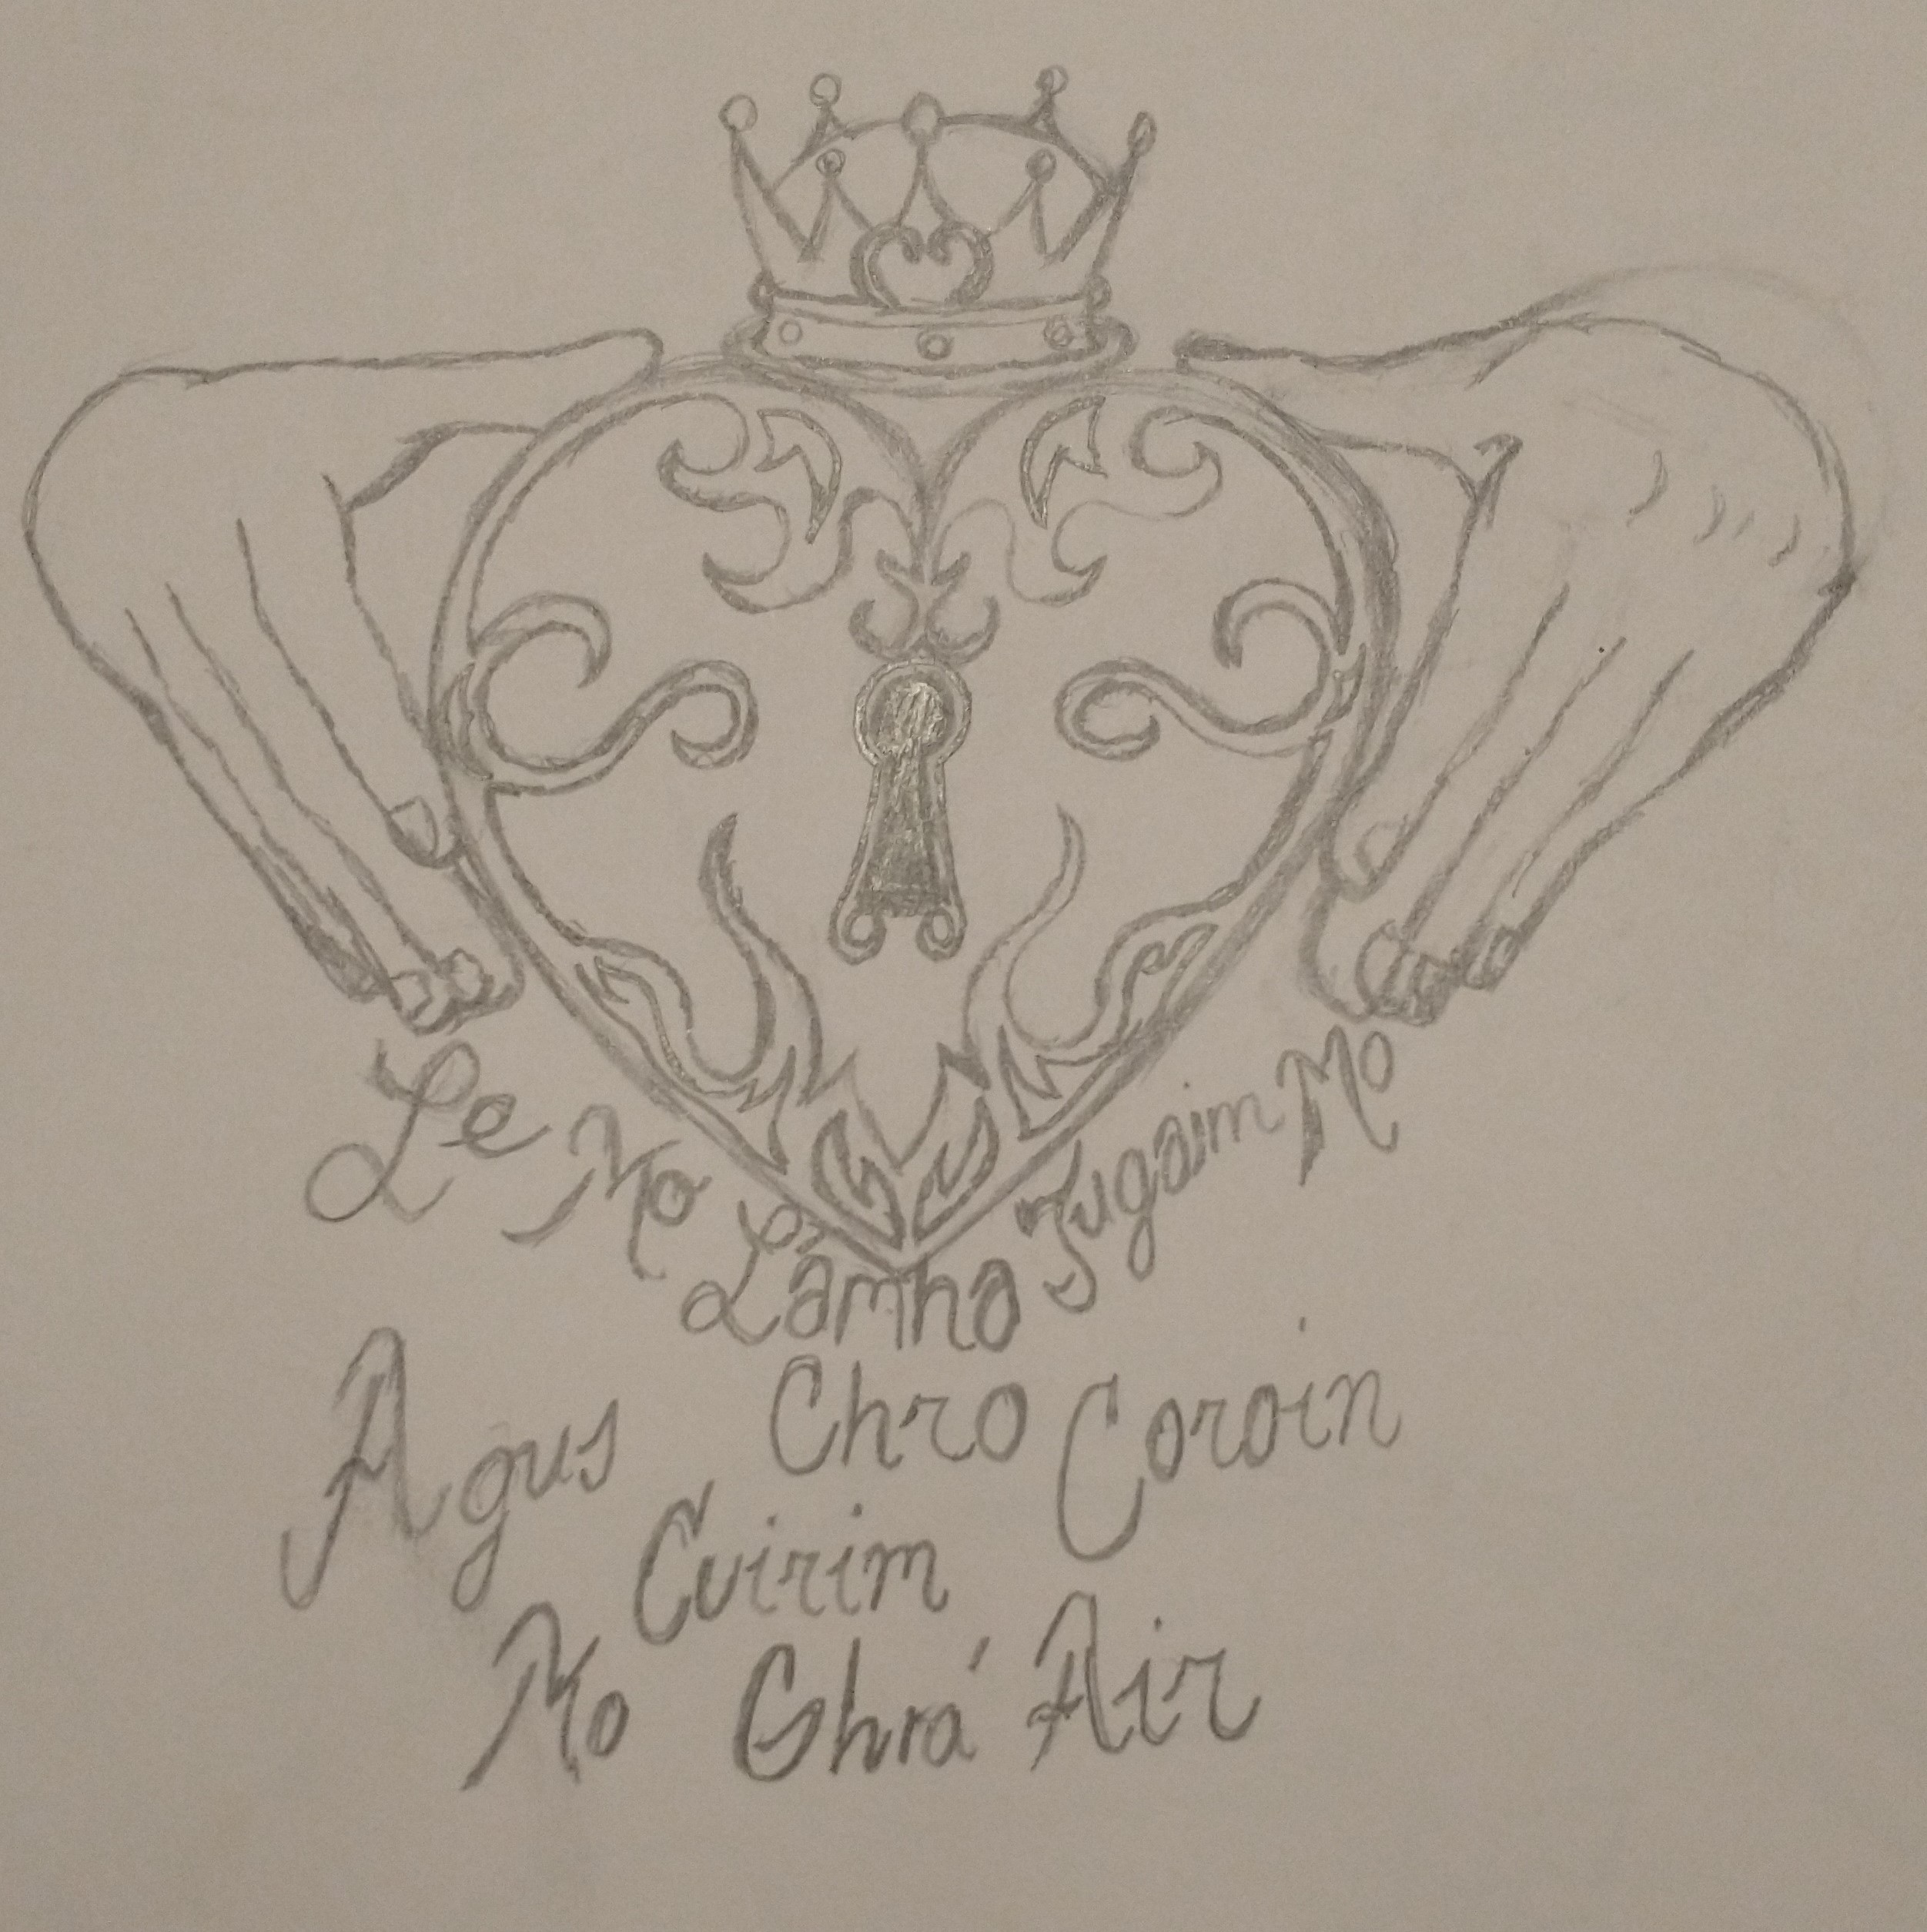 Le Mo Lámha Tugaim Mo
Chro Coroin
Agus Cuirim
Mo Ghrá Air